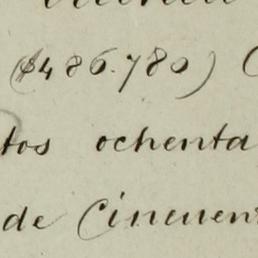 ($486.780)
tos ochenta
de Cincuen